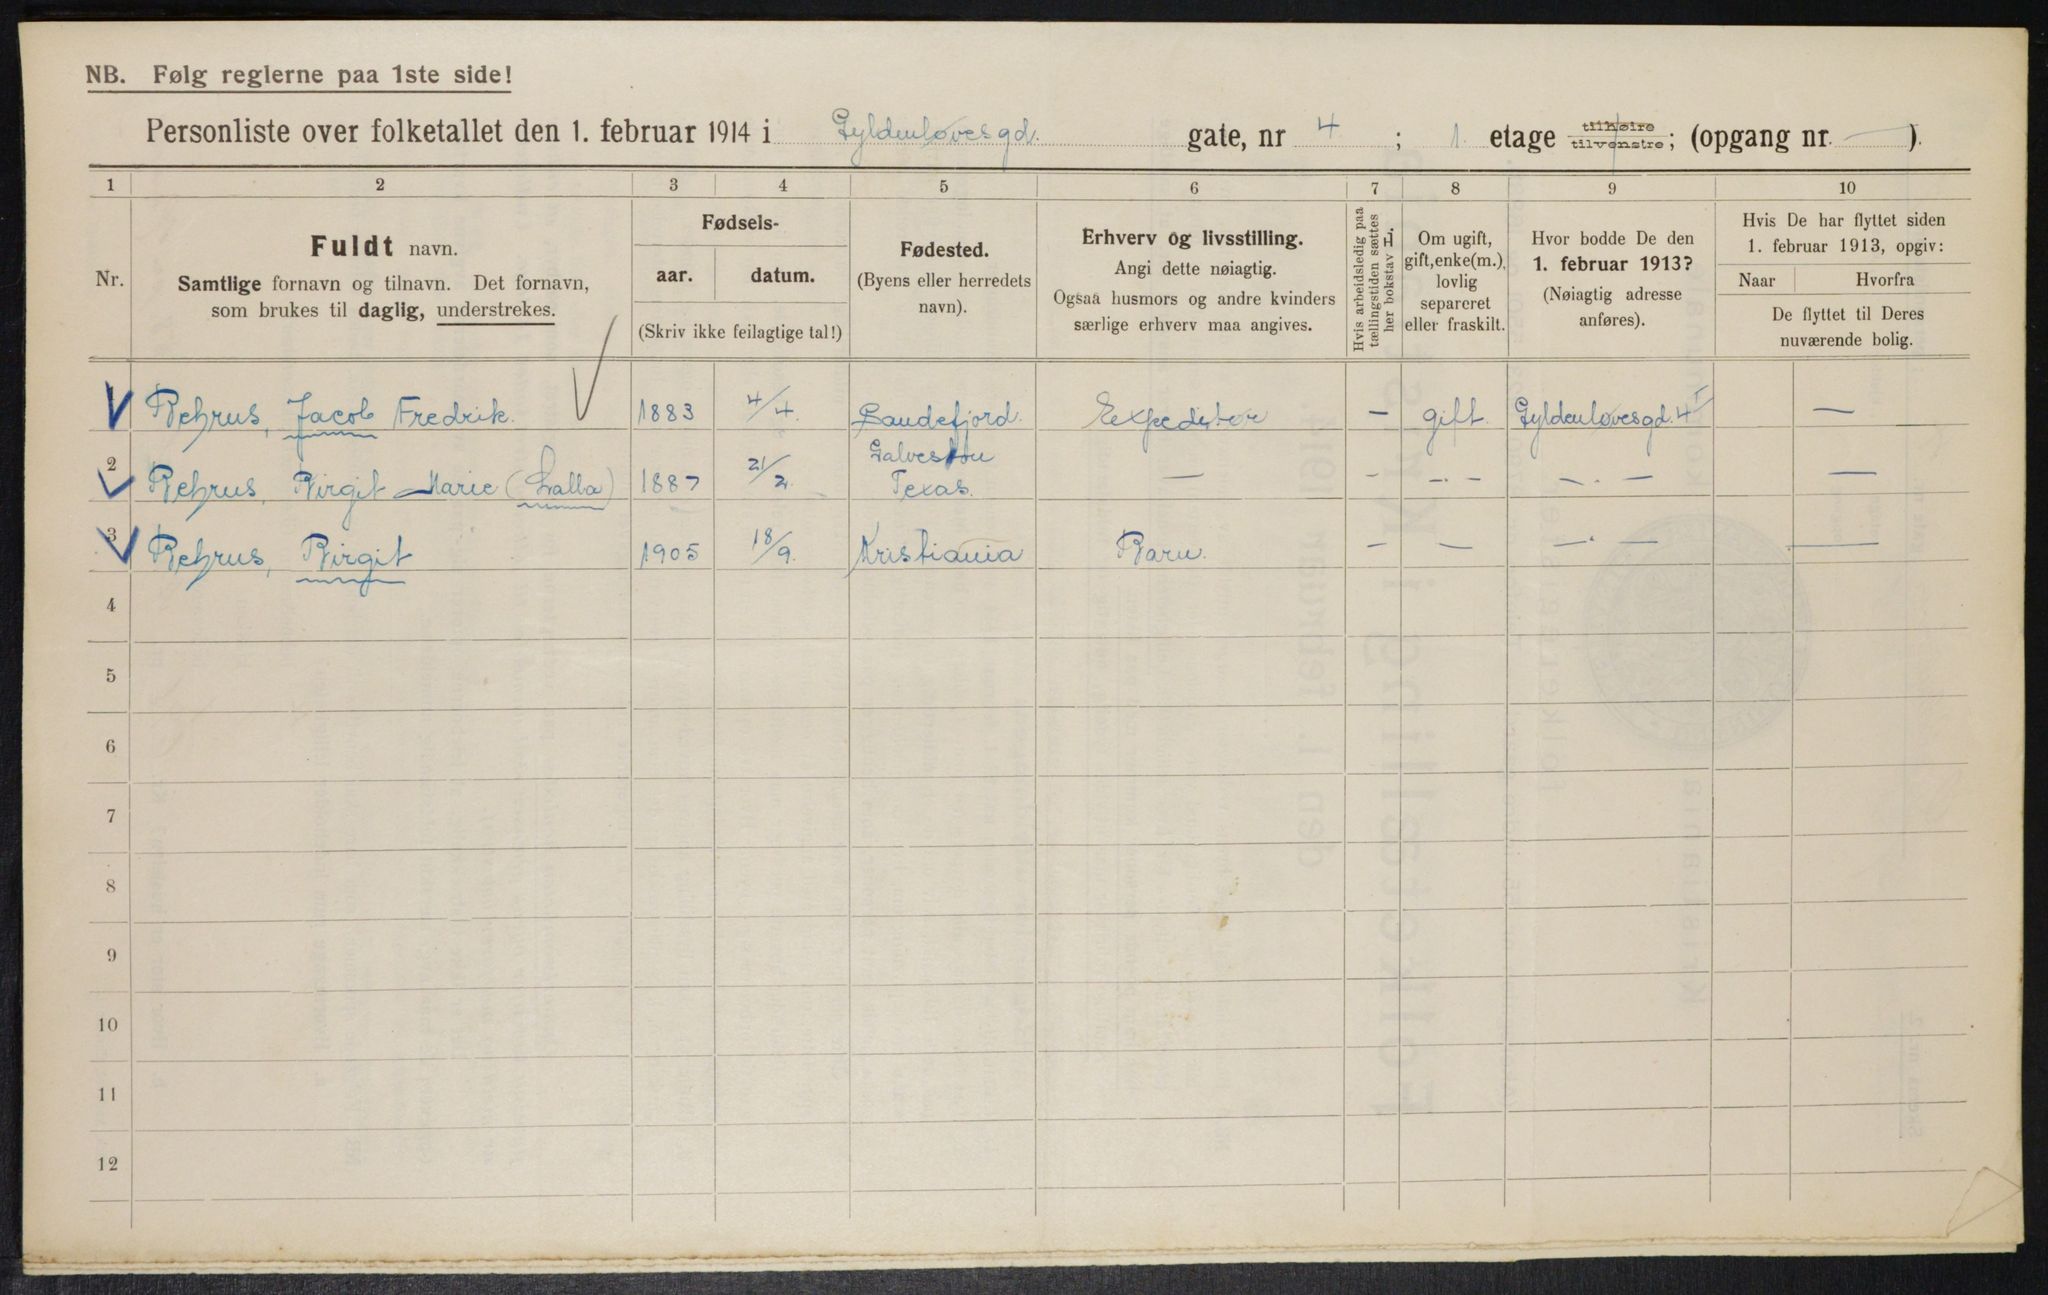 NB. Følg reglerne paa 1ste side!
Personliste over folketallet den 1. februar 1914 i Gyldenløvesgd. gate, nr 4 ; 1. etage tilhøire tilvenstre; (opgang nr. — ).
1 2 3 4 5 6 7 8 9 10
Nr.
Fuldt navn.
Samtlige fornavn og tilnavn. Det fornavn,
som brukes til daglig, understrekes.
Fødsels-
aar. datum.
(Skriv ikke feilagtige tal!)
Fødested.
(Byens eller herredets
navn).
Erhverv og livsstilling.
Angi dette nøiagtig.
Ogsaa husmors og andre kvinders
særlige erhverv maa angives.
Hvis arbeidsledig paa
tællingstiden sættes
her bokstav L.
Om ugift,
gift, enke(m.),
lovlig
separeret
eller fraskilt.
Hvor bodde De den
1. februar 1913?
(Nøiagtig adresse
anføres).
Hvis De har flyttet siden
1. februar 1913, opgiv:
Naar Hvorfra
De flyttet til Deres
nuværende bolig.
Behrus, Jacob Fredrik. 1883 4/4. Sandefjord. Expeditør — gift. Gyldenløvesgd. 4 I —
2 Behrus, Birgit Marie (Lalla) 1887 21/2. Galveston Texas. — - -.- -.- —
3 Behrus, Birgit 1905 18/9. Kristiania Barn. - — -.- —
4
5
6
7
8
9
10
11
12